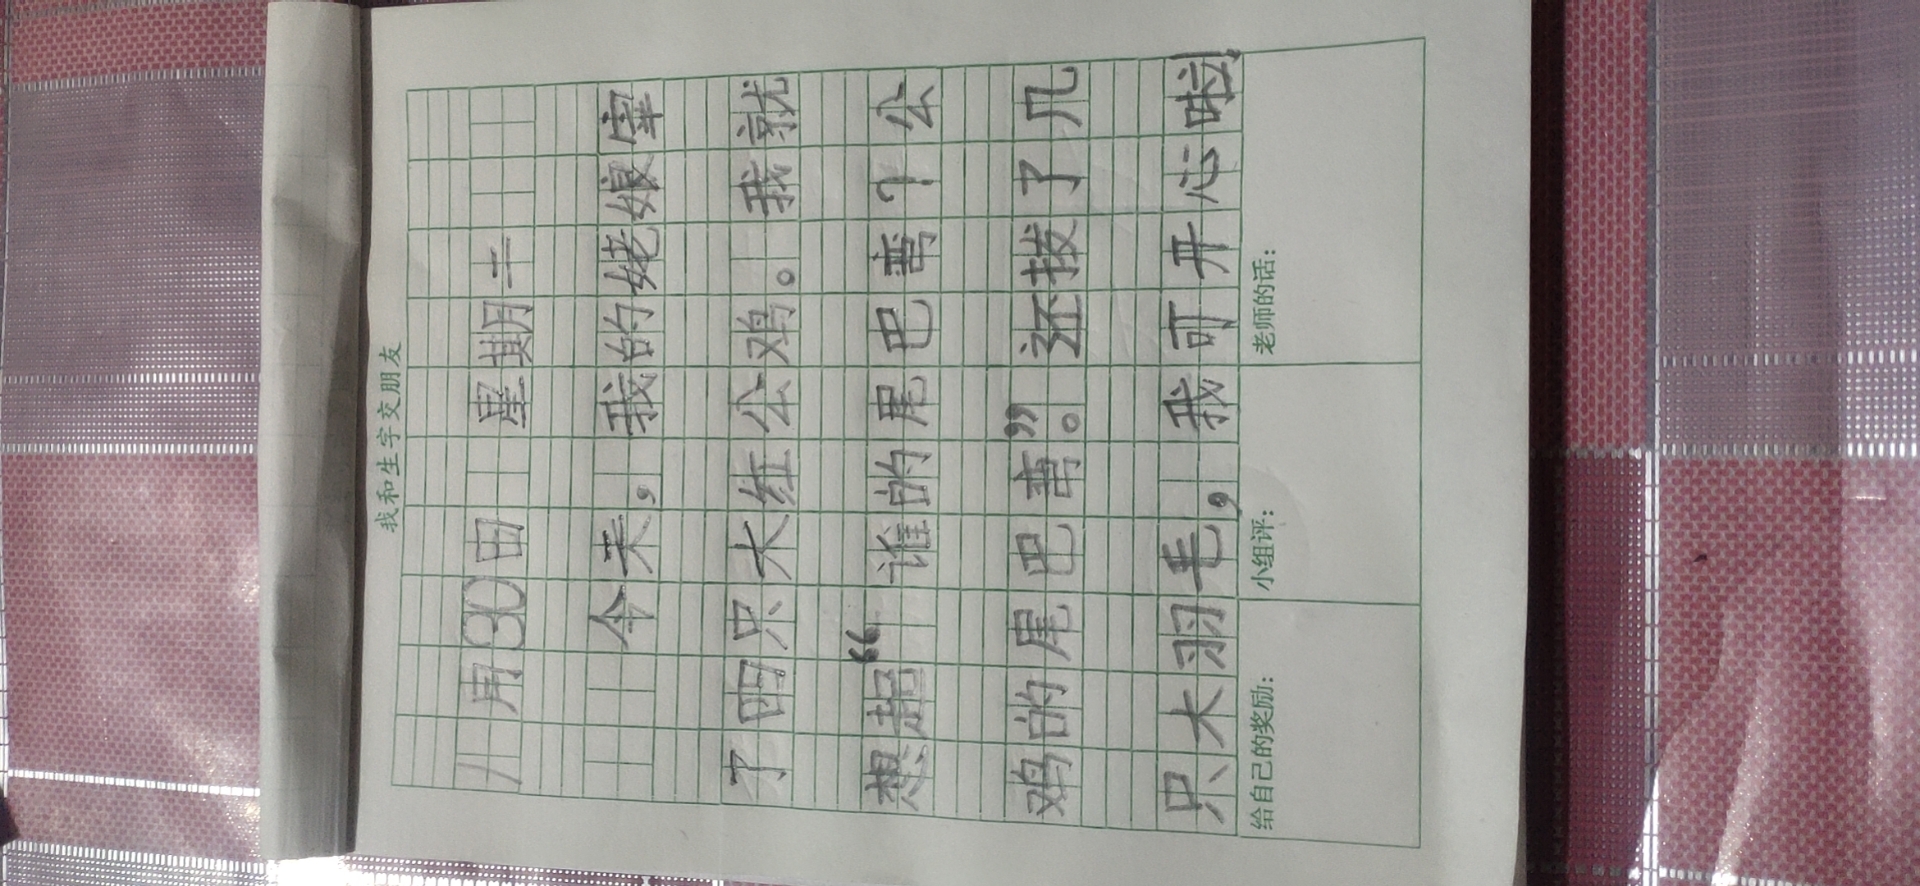 我和生字交朋友
八月30日 星期二
今天，我的姥娘宰
了四只大红公鸡。我就
想起“谁的尾巴弯？公
鸡的尾巴弯”。还拔了几
只大羽毛，我可开心啦！
给自己的奖励： 小组评： 老师的话：